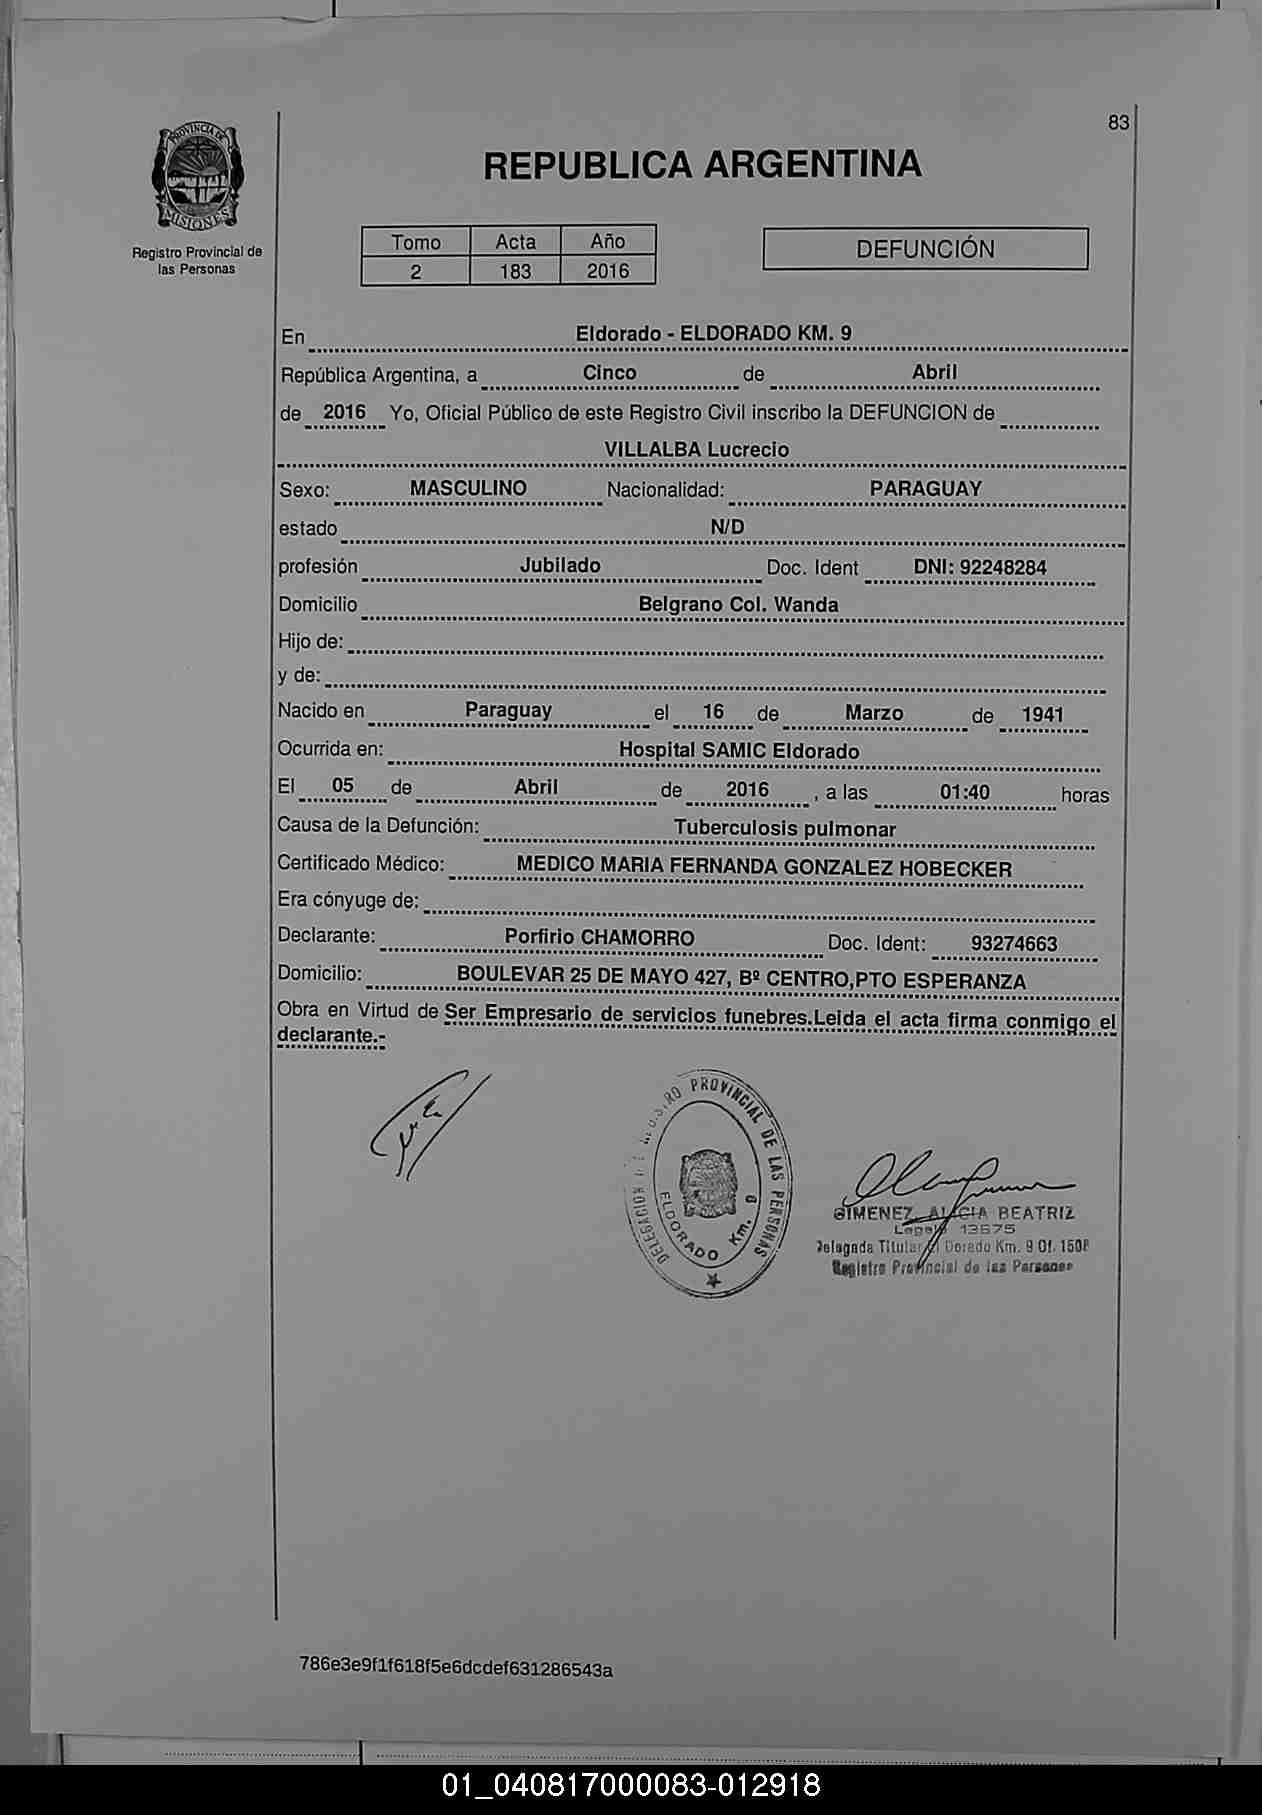 83
PROVINCIA DE
MISIONES
Registro Provincial de
las Personas
REPUBLICA ARGENTINA
Tomo Acta Año
2 183 2016
DEFUNCIÓN
En Eldorado - ELDORADO KM. 9
República Argentina, a Cinco de Abril
de 2016 Yo, Oficial Público de este Registro Civil inscribo la DEFUNCION de
VILLALBA Lucrecio
Sexo: MASCULINO Nacionalidad: PARAGUAY
estado N/D
profesión Jubilado Doc. Ident DNI: 92248284
Domicilio Belgrano Col. Wanda
Hijo de:
y de:
Nacido en Paraguay el 16 de Marzo de 1941
Ocurrida en: Hospital SAMIC Eldorado
El 05 de Abril de 2016 , a las 01:40 horas
Causa de la Defunción: Tuberculosis pulmonar
Certificado Médico: MEDICO MARIA FERNANDA GONZALEZ HOBECKER
Era cónyuge de:
Declarante: Porfirio CHAMORRO Doc. Ident: 93274663
Domicilio: BOULEVAR 25 DE MAYO 427, Bº CENTRO,PTO ESPERANZA
Obra en Virtud de Ser Empresario de servicios funebres.Leida el acta firma conmigo el
declarante.-
DELEGACION PROVINCIAL DE LAS PERSONAS
ELDORADO Km. 9
GIMENEZ, ALICIA BEATRIZ
Legajo 13675
Delegada Titular El Dorado Km. 9 Of. 1508
Registro Provincial de las Personas
786e3e9f1f618f5e6dcdef631286543a
01_040817000083-012918